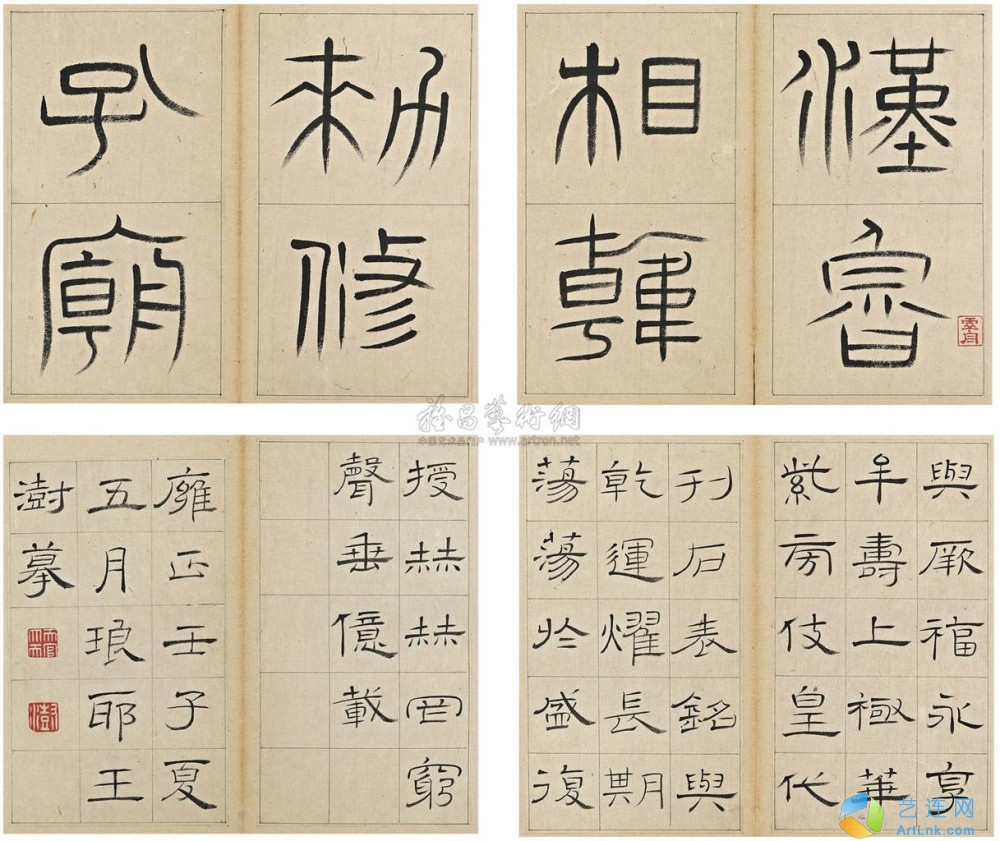 漢魯
相韓
勑修
孔廟
與厥福永享
牟壽上極華
紫旁伎皇代
刊石表銘與
乾運燿長期
蕩蕩於盛復
授赫赫罔窮
聲垂億載
雍正壬子夏
五月琅耶王
澍摹
澍
雅昌藝術網
www.artron.net
艺连网
ArtLnk.com